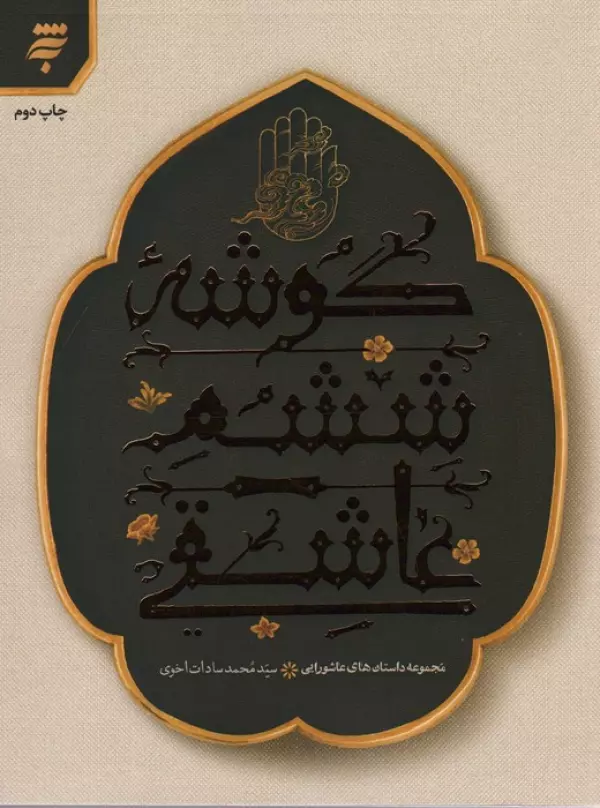 چاپ دوم
گوشهٔ
ششم
عاشقی
مجموعه داستان‌های عاشورایی * سیّد محمد سادات اخوی